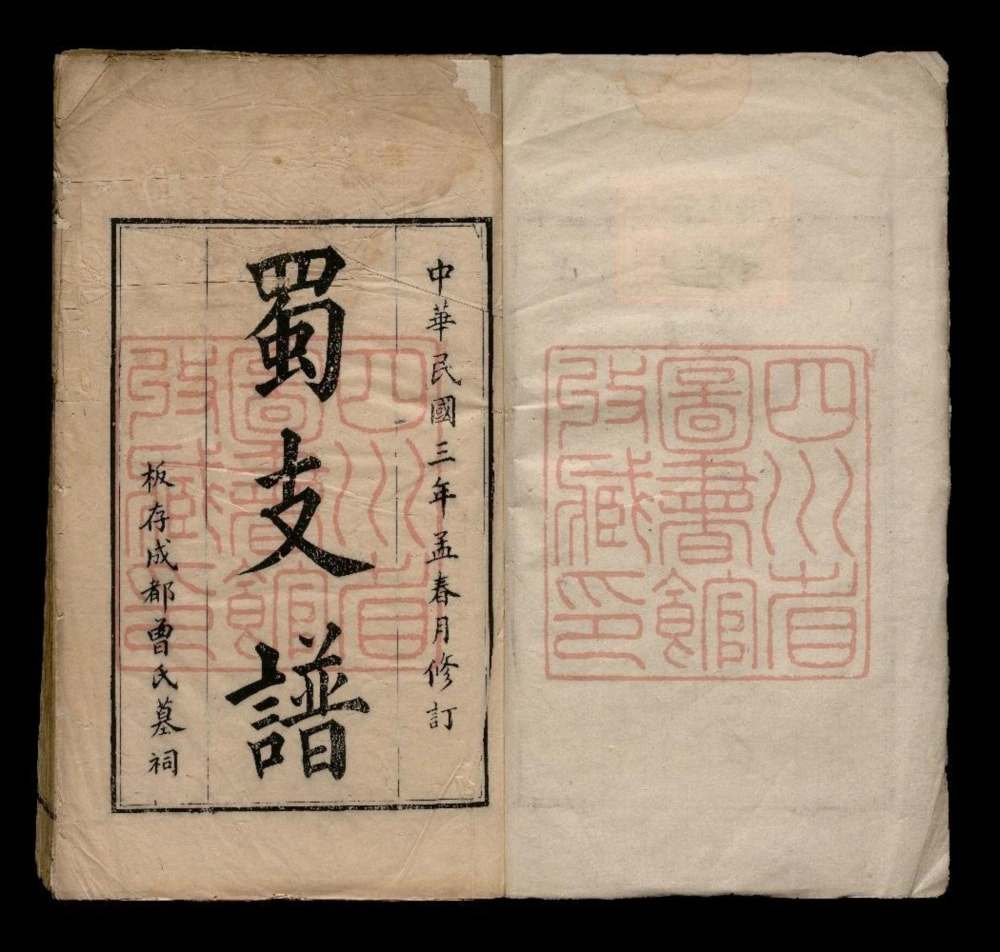 四川省
圖書館
收藏印
中華民國三年孟春月修訂
蜀支譜
板存成都曾氏墓祠
四川省
圖書館
收藏印